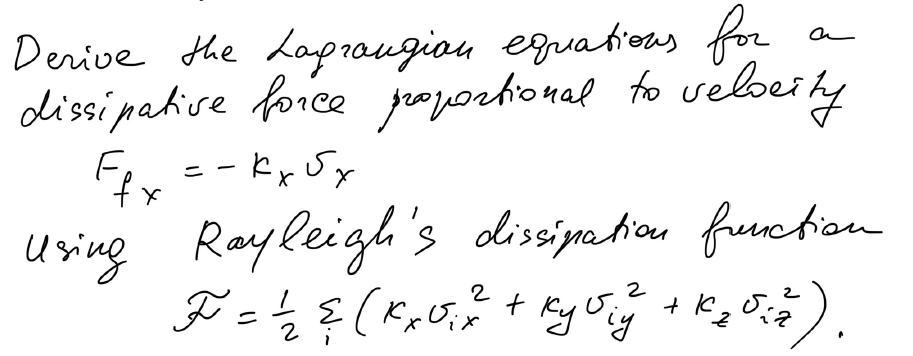 Derive the Lagrangian equations for a
dissipative force proportional to velocity
F_{fx} = - k_x v_x
Using Rayleigh's dissipation function
ℱ = 1/2 Σ_i (k_x v_{ix}^2 + k_y v_{iy}^2 + k_z v_{iz}^2).